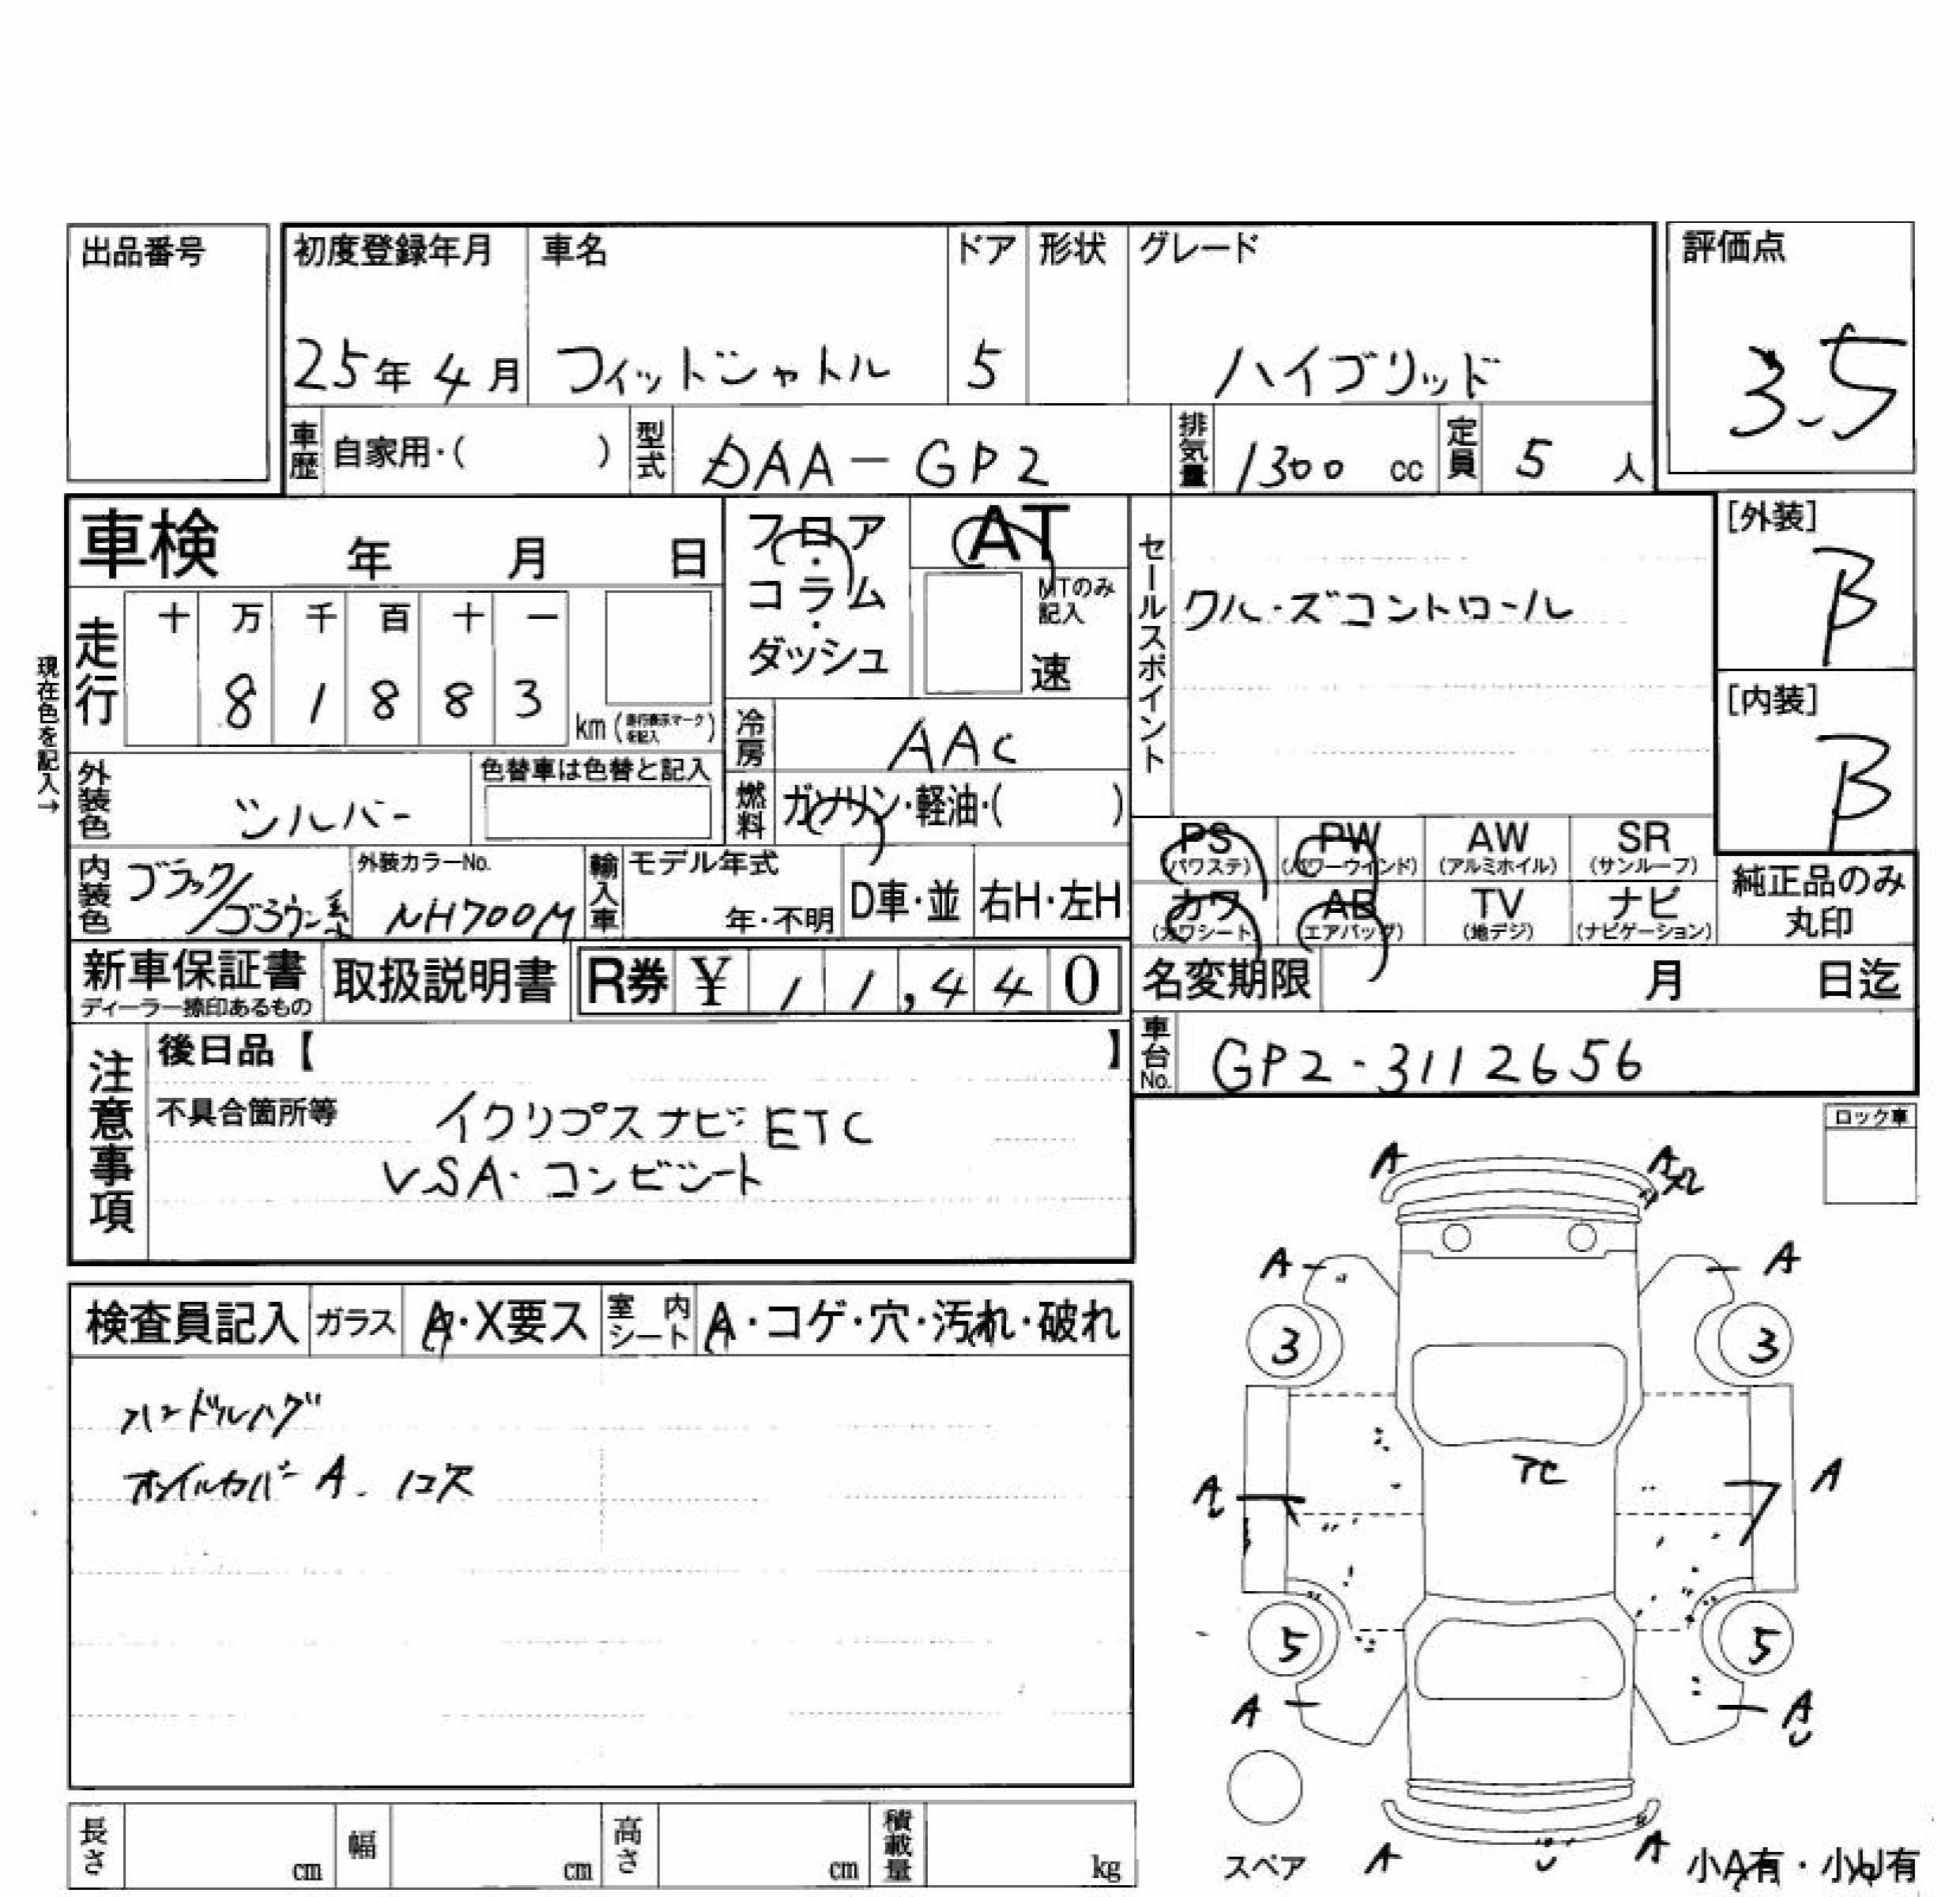 出品番号
初度登録年月 車名 ドア 形状 グレード 評価点
25年 4月 フィットシャトル 5 ハイブリッド 3.5
車歴 自家用・( ) 型式 DAA-GP2 排気量 1300 cc 定員 5 人
車検 年 月 日
フロア・コラム・ダッシュ
AT
MTのみ記入
速
セールスポイント
クルーズコントロール
[外装]
B
[内装]
B
現在色を記入→
走行 十 万 千 百 十 一
8 1 8 8 3 km (走行表示マークを記入)
冷房 AAC
燃料 ガソリン・軽油・( )
外装色 シルバー 色替車は色替と記入
内装色 ブラック/ブラウン系 外装カラーNo. NH700M 輸入車 モデル年式 年・不明 D車・並 右H・左H
PS (パワステ) PW (パワーウインド) AW (アルミホイル) SR (サンルーフ)
カワ (カワシート) AB (エアバッグ) TV (地デジ) ナビ (ナビゲーション)
純正品のみ丸印
新車保証書 ディーラー捺印あるもの 取扱説明書 R券 ¥ 11,440
名変期限 月 日迄
車台No. GP2-3112656
注意事項
後日品【 】
不具合箇所等 イクリプスナビ ETC
VSA・コンビシート
ロック車
検査員記入 ガラス A・X要ス 室内シート A・コゲ・穴・汚れ・破れ
ハンドルハゲ
A
A
A A
3 3
A A
5 5
A A
A A
スペア
小A有・小U有
長さ cm 幅 cm 高さ cm 積載量 kg